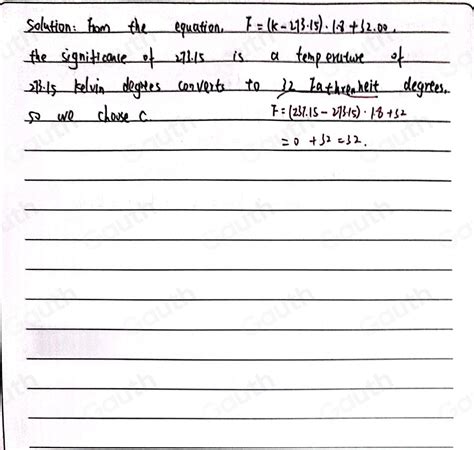 Solution: From the equation. F = (k - 273.15) · 1.8 + 32.00.
the significance of 273.15 is a temperature of
273.15 kelvin degrees converts to 32 Fathrenheit degrees.
so we choose C. F = (231.15 - 273.15) · 1.8 + 32
= 0 + 32 = 32.